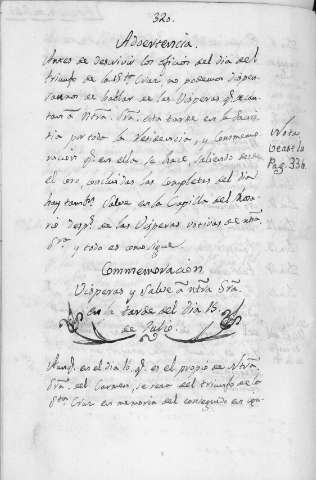 320.
Advertencia.
Antes de descrivir los oficios del dia del
triunfo de la Sta. Cruz no podemos dispen-
sarnos de hablar de las Visperas qe. se can-
tan a Ntra. Sra. esta tarde en la
por toda la Residencia, y Conmemo-
racion qe. en ella se hace, saliendo desde
el coro, concluidas las Completas del dia
hay tambn. Salve en la Capilla del Rosa-
rio desps. de las Visperas votivas de ntra.
Sra. y todo es como sigue.
Nota
vease la
Pag. 336.
Commemoracion
Visperas y Salve a ntra Sra.
en la tarde del Dia 15.
de Julio.
Aunqe. en el dia 16. qe. es el propio de Ntra.
Sra. del Carmen, se reza del triunfo de la
Sta. Cruz en memoria del conseguido en